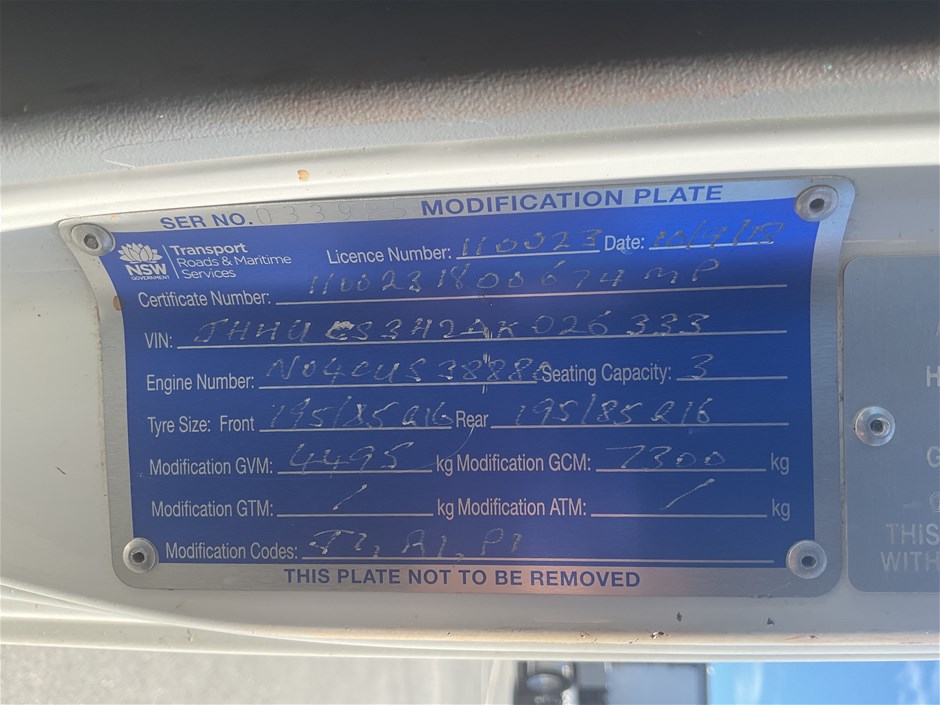 SER NO. 033985 MODIFICATION PLATE
NSW GOVERNMENT
Transport
Roads & Maritime
Services
Licence Number: 110023 Date:
Certificate Number: 1100231800674MP
VIN: JHHUCS3H2AK026333
Engine Number: Seating Capacity: 3
Tyre Size: Front 195/85R16 Rear 195/85R16
Modification GVM: 4495 kg Modification GCM: 7300 kg
Modification GTM: / kg Modification ATM: / kg
Modification Codes:
THIS PLATE NOT TO BE REMOVED
THIS
WITH